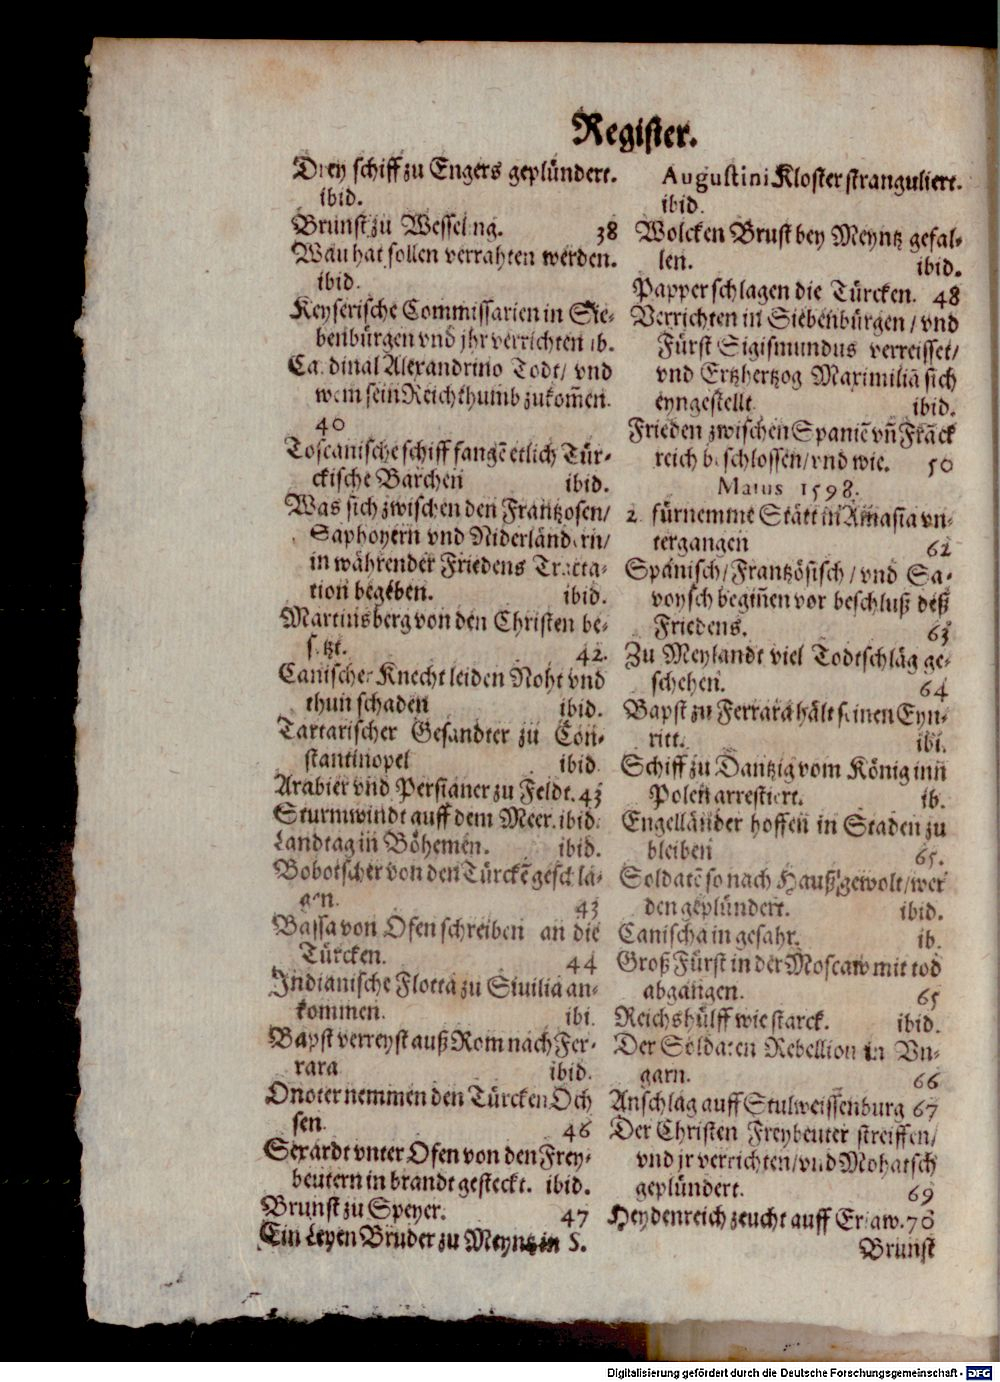 Register.
Drey schiff zu Engers geplündert.
ibid.
Brunst zu Wesseling. 38
Wau hat sollen verrahten werden.
ibid.
Keyserische Commissarien in Sie-
benbürgen vnd jhr verrichten ib.
Cardinal Alexandrino Todt/ vnd
wem sein Reichthumb zukom̃en.
40
Toscanische schiff fangē etlich Tür-
ckische Barchen ibid.
Was sich zwischen den Frantzosen/
Saphoyern vnd Niderländern/
in währender Friedens Tracta-
tion begeben. ibid.
Martinsberg von den Christen be-
setzt. 42.
Canischer Knecht leiden Noht vnd
thun schaden ibid.
Tartarischer Gesandter zu Con-
stantinopel ibid.
Arabier vnd Persianer zu Feldt. 43
Sturmwindt auff dem Meer. ibid.
Landtag in Böhemen. ibid.
Bobotscher von den Türckē geschla-
gen. 43
Bassa von Ofen schreiben an die
Türcken. 44
Indianische Flotta zu Siuilia an-
kommen. ibi.
Bapst verreyst auß Rom nach Fer-
rara ibid.
Onoter nemmen den Türcken Och
sen. 46
Sexardt vnter Ofen von den Frey-
beutern in brandt gesteckt. ibid.
Brunst zu Speyer. 47
Ein Leyen Bruder zu Meyntz in S.
Augustini Kloster stranguliert.
ibid.
Wolcken Brust bey Meyntz gefal-
len. ibid.
Papper schlagen die Türcken. 48
Verrichten in Siebenbürgen/ vnd
Fürst Sigismundus verreisset/
vnd Ertzhertzog Maximiliā sich
eyngestellt. ibid.
Frieden zwischen Spaniē vñ Frāck
reich beschlossen/ vnd wie. 50
Maius 1598.
2. fürnemme Stätt in Amasia vn-
tergangen 62
Spanisch/ Frantzösisch/ vnd Sa-
voysch begiñen vor beschluß deß
Friedens. 63
Zu Meylandt viel Todtschläg ge-
schehen. 64
Bapst zu Ferrara hält seinen Eyn-
ritt. ibi.
Schiff zu Dantzig vom König inn
Polen arrestiert. ib.
Engelländer hoffen in Staden zu
bleiben 65.
Soldatē so nach Hauß gewolt/ wer
den geplündert. ibid.
Canischa in gefahr. ib.
Groß Fürst in der Moscaw mit tod
abgangen. 65
Reichshülff wie starck. ibid.
Der Soldaten Rebellion in Vn-
garn. 66
Anschlag auff Stulweissenburg 67
Der Christen Freybeuter streiffen/
vnd jr verrichten/ vnd Mohatsch
geplündert. 69
Heydenreich zeucht auff Erlaw. 70
Brunst
Digitalisierung gefördert durch die Deutsche Forschungsgemeinschaft - DFG